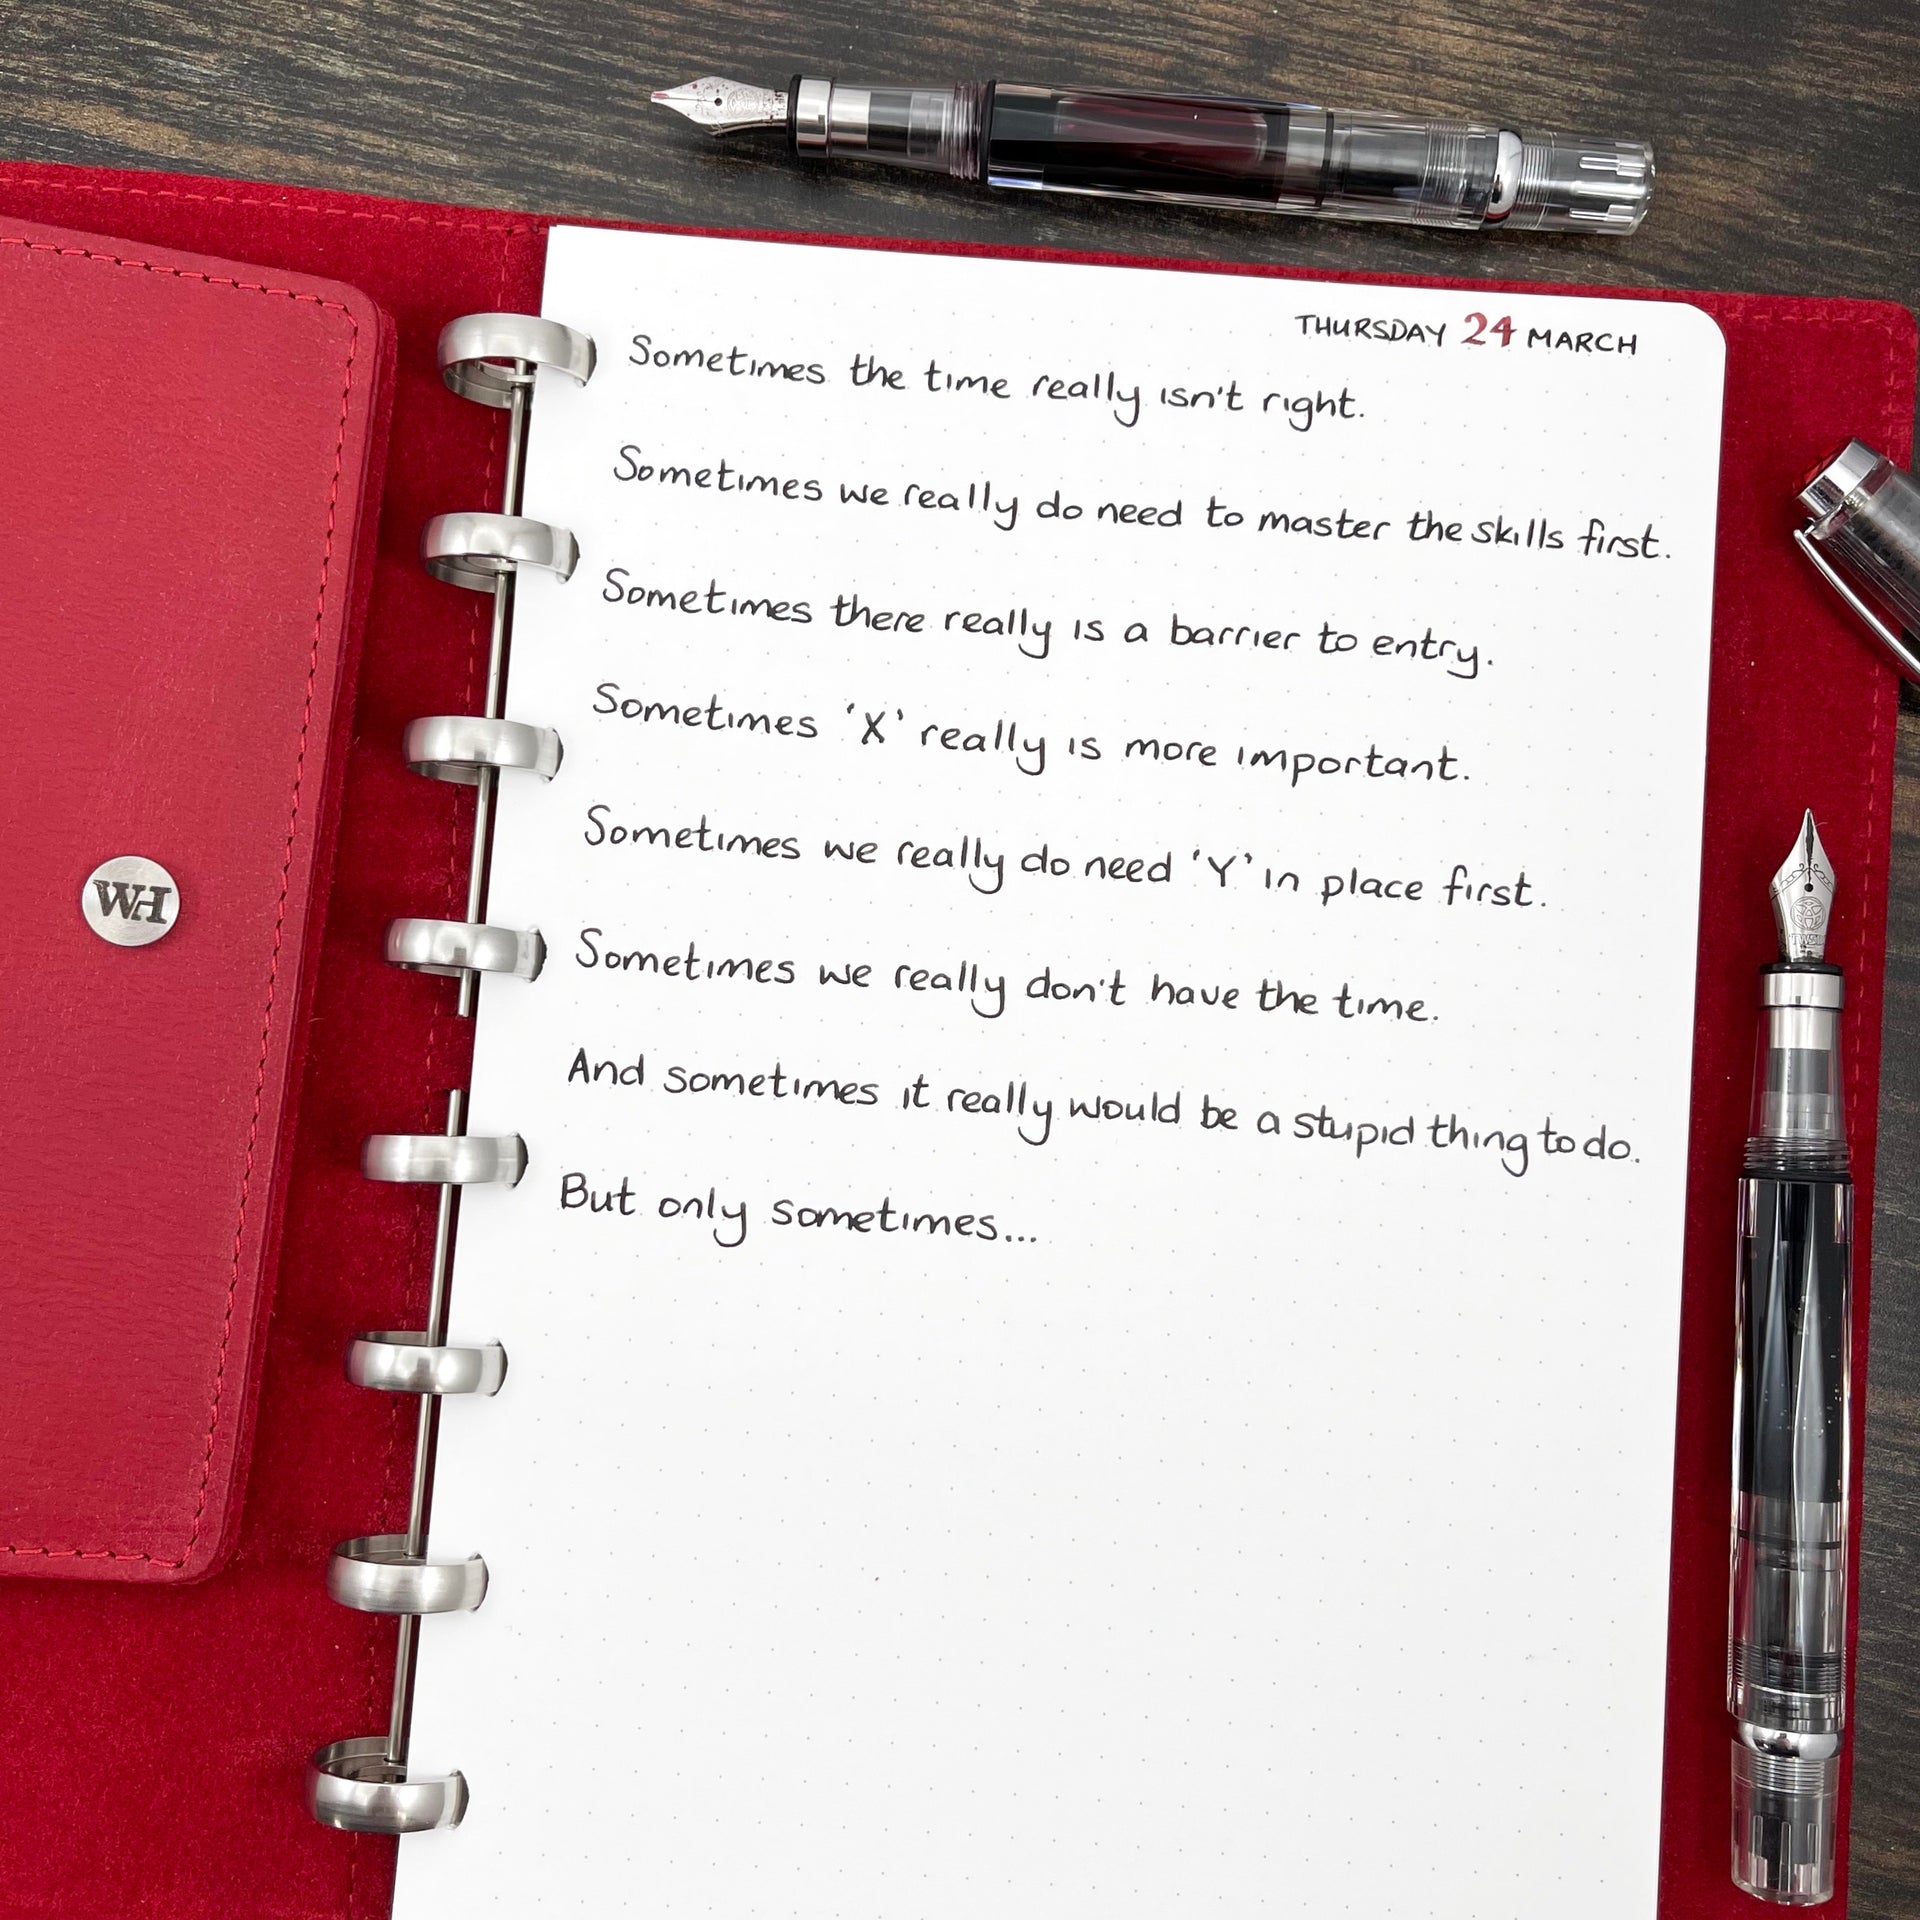 THURSDAY 24 MARCH
Sometimes the time really isn't right.
Sometimes we really do need to master the skills first.
Sometimes there really is a barrier to entry.
Sometimes 'X' really is more important.
Sometimes we really do need 'Y' in place first.
Sometimes we really don't have the time.
And sometimes it really would be a stupid thing to do.
But only sometimes...
WH
TWSBI